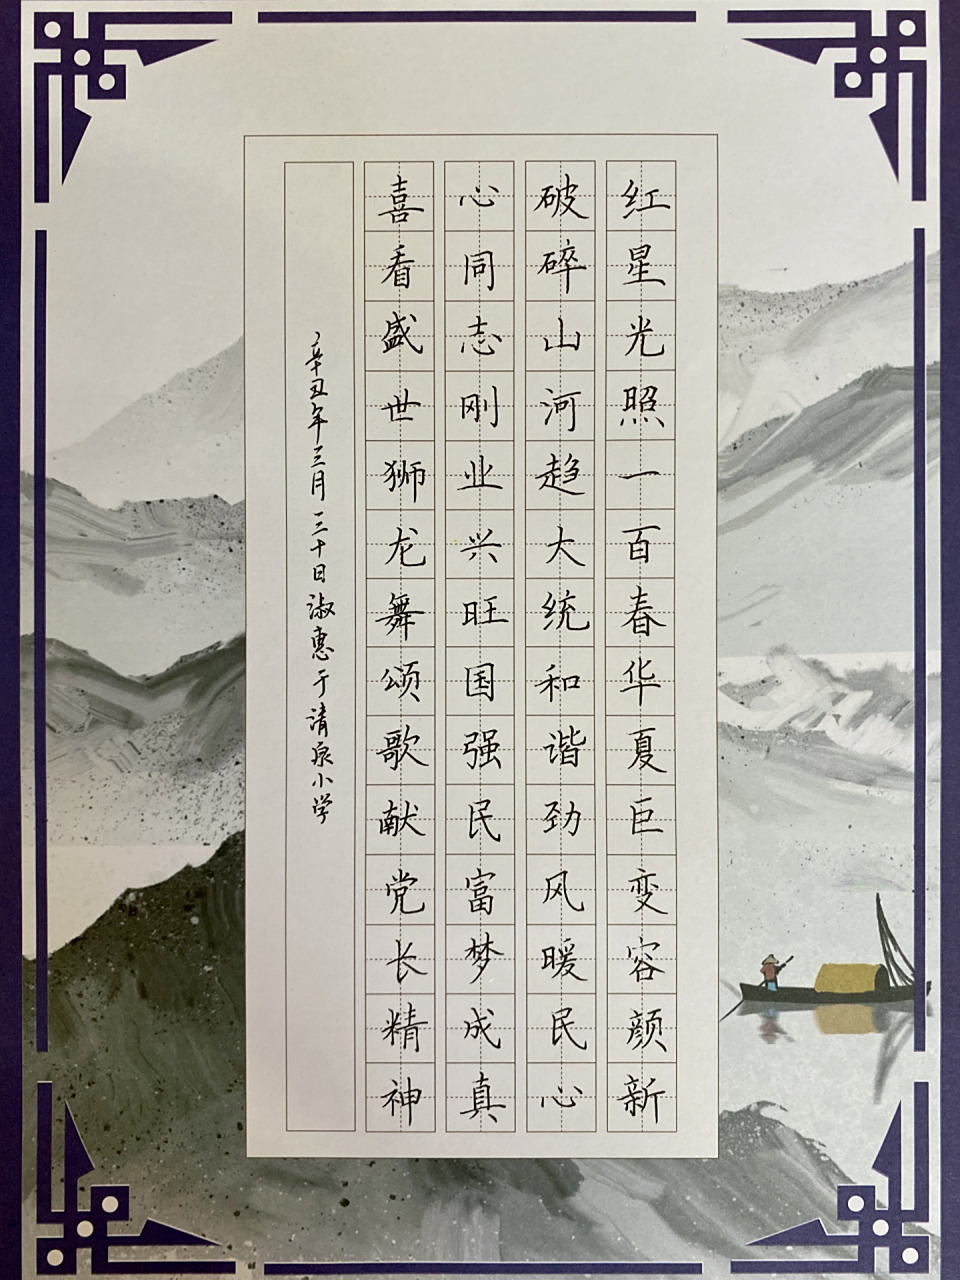 红星光照一百春华夏巨变容颜新
破碎山河趋大统和谐劲风暖民心
心同志刚业兴旺国强民富梦成真
喜看盛世狮龙舞颂歌献党长精神
辛丑年三月三十日淑惠于清泉小学